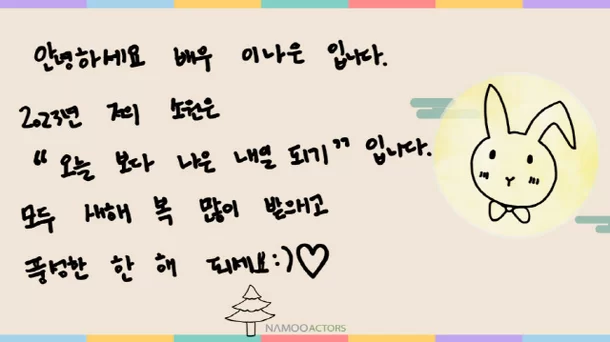 안녕하세요 배우 이나은 입니다.
2023년 저의 소원은
“오늘 보다 나은 내일 되기” 입니다.
모두 새해 복 많이 받으시고
풍성한 한 해 되세요:)♡
NAMOO ACTORS